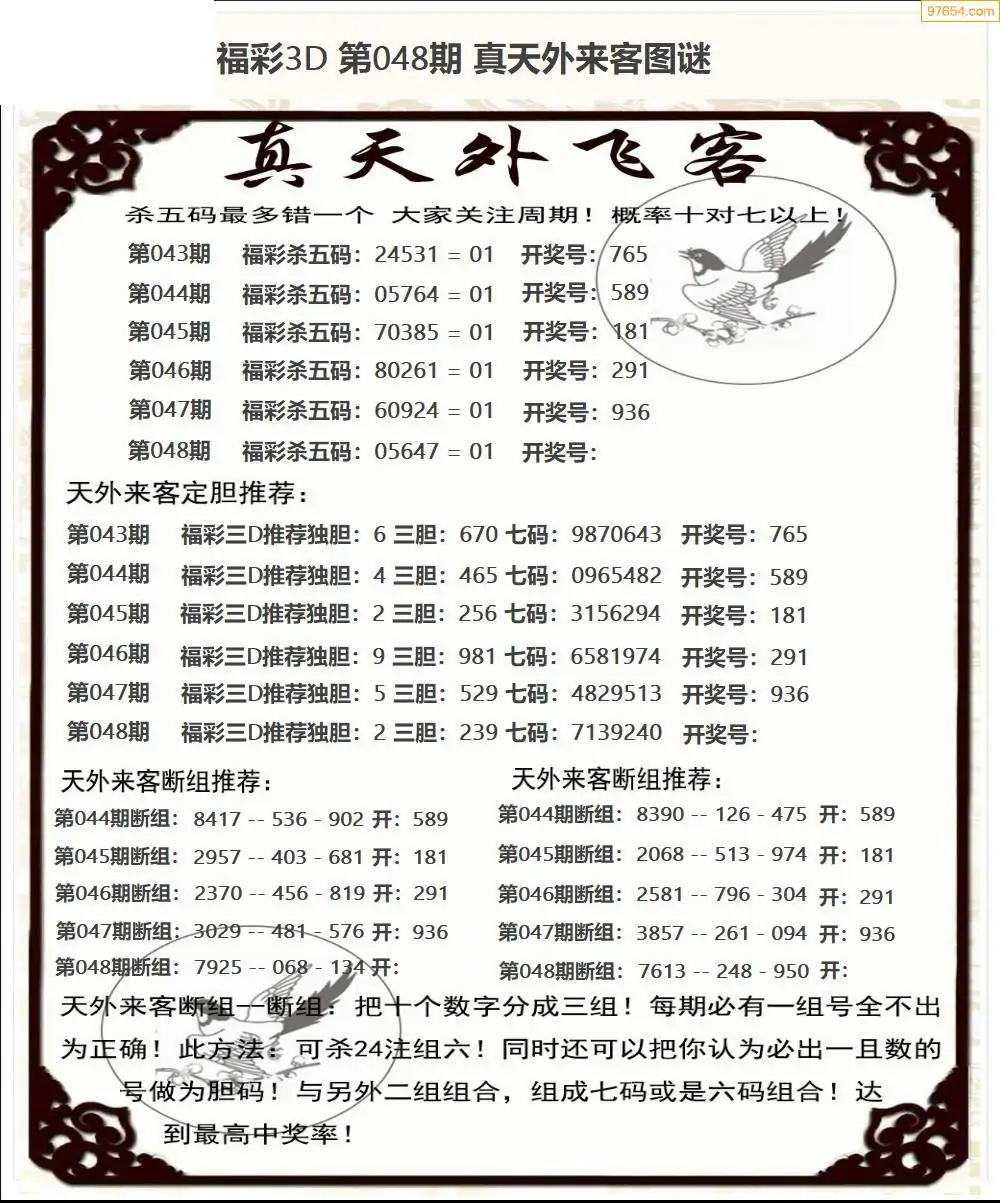 97654.com
福彩3D 第048期 真天外来客图谜
真天外飞客
杀五码最多错一个 大家关注周期！概率十对七以上！
第043期 福彩杀五码：24531 = 01 开奖号：765
第044期 福彩杀五码：05764 = 01 开奖号：589
第045期 福彩杀五码：70385 = 01 开奖号：181
第046期 福彩杀五码：80261 = 01 开奖号：291
第047期 福彩杀五码：60924 = 01 开奖号：936
第048期 福彩杀五码：05647 = 01 开奖号：
天外来客定胆推荐：
第043期 福彩三D推荐独胆：6 三胆：670 七码：9870643 开奖号：765
第044期 福彩三D推荐独胆：4 三胆：465 七码：0965482 开奖号：589
第045期 福彩三D推荐独胆：2 三胆：256 七码：3156294 开奖号：181
第046期 福彩三D推荐独胆：9 三胆：981 七码：6581974 开奖号：291
第047期 福彩三D推荐独胆：5 三胆：529 七码：4829513 开奖号：936
第048期 福彩三D推荐独胆：2 三胆：239 七码：7139240 开奖号：
天外来客断组推荐：
第044期断组：8417 -- 536 - 902 开：589
第045期断组：2957 -- 403 - 681 开：181
第046期断组：2370 -- 456 - 819 开：291
第047期断组：3029 -- 481 - 576 开：936
第048期断组：7925 -- 068 - 134 开：
天外来客断组推荐：
第044期断组：8390 -- 126 - 475 开：589
第045期断组：2068 -- 513 - 974 开：181
第046期断组：2581 -- 796 - 304 开：291
第047期断组：3857 -- 261 - 094 开：936
第048期断组：7613 -- 248 - 950 开：
天外来客断组一断组：把十个数字分成三组！每期必有一组号全不出
为正确！此方法：可杀24注组六！同时还可以把你认为必出一且数的
号做为胆码！与另外二组组合，组成七码或是六码组合！达
到最高中奖率！